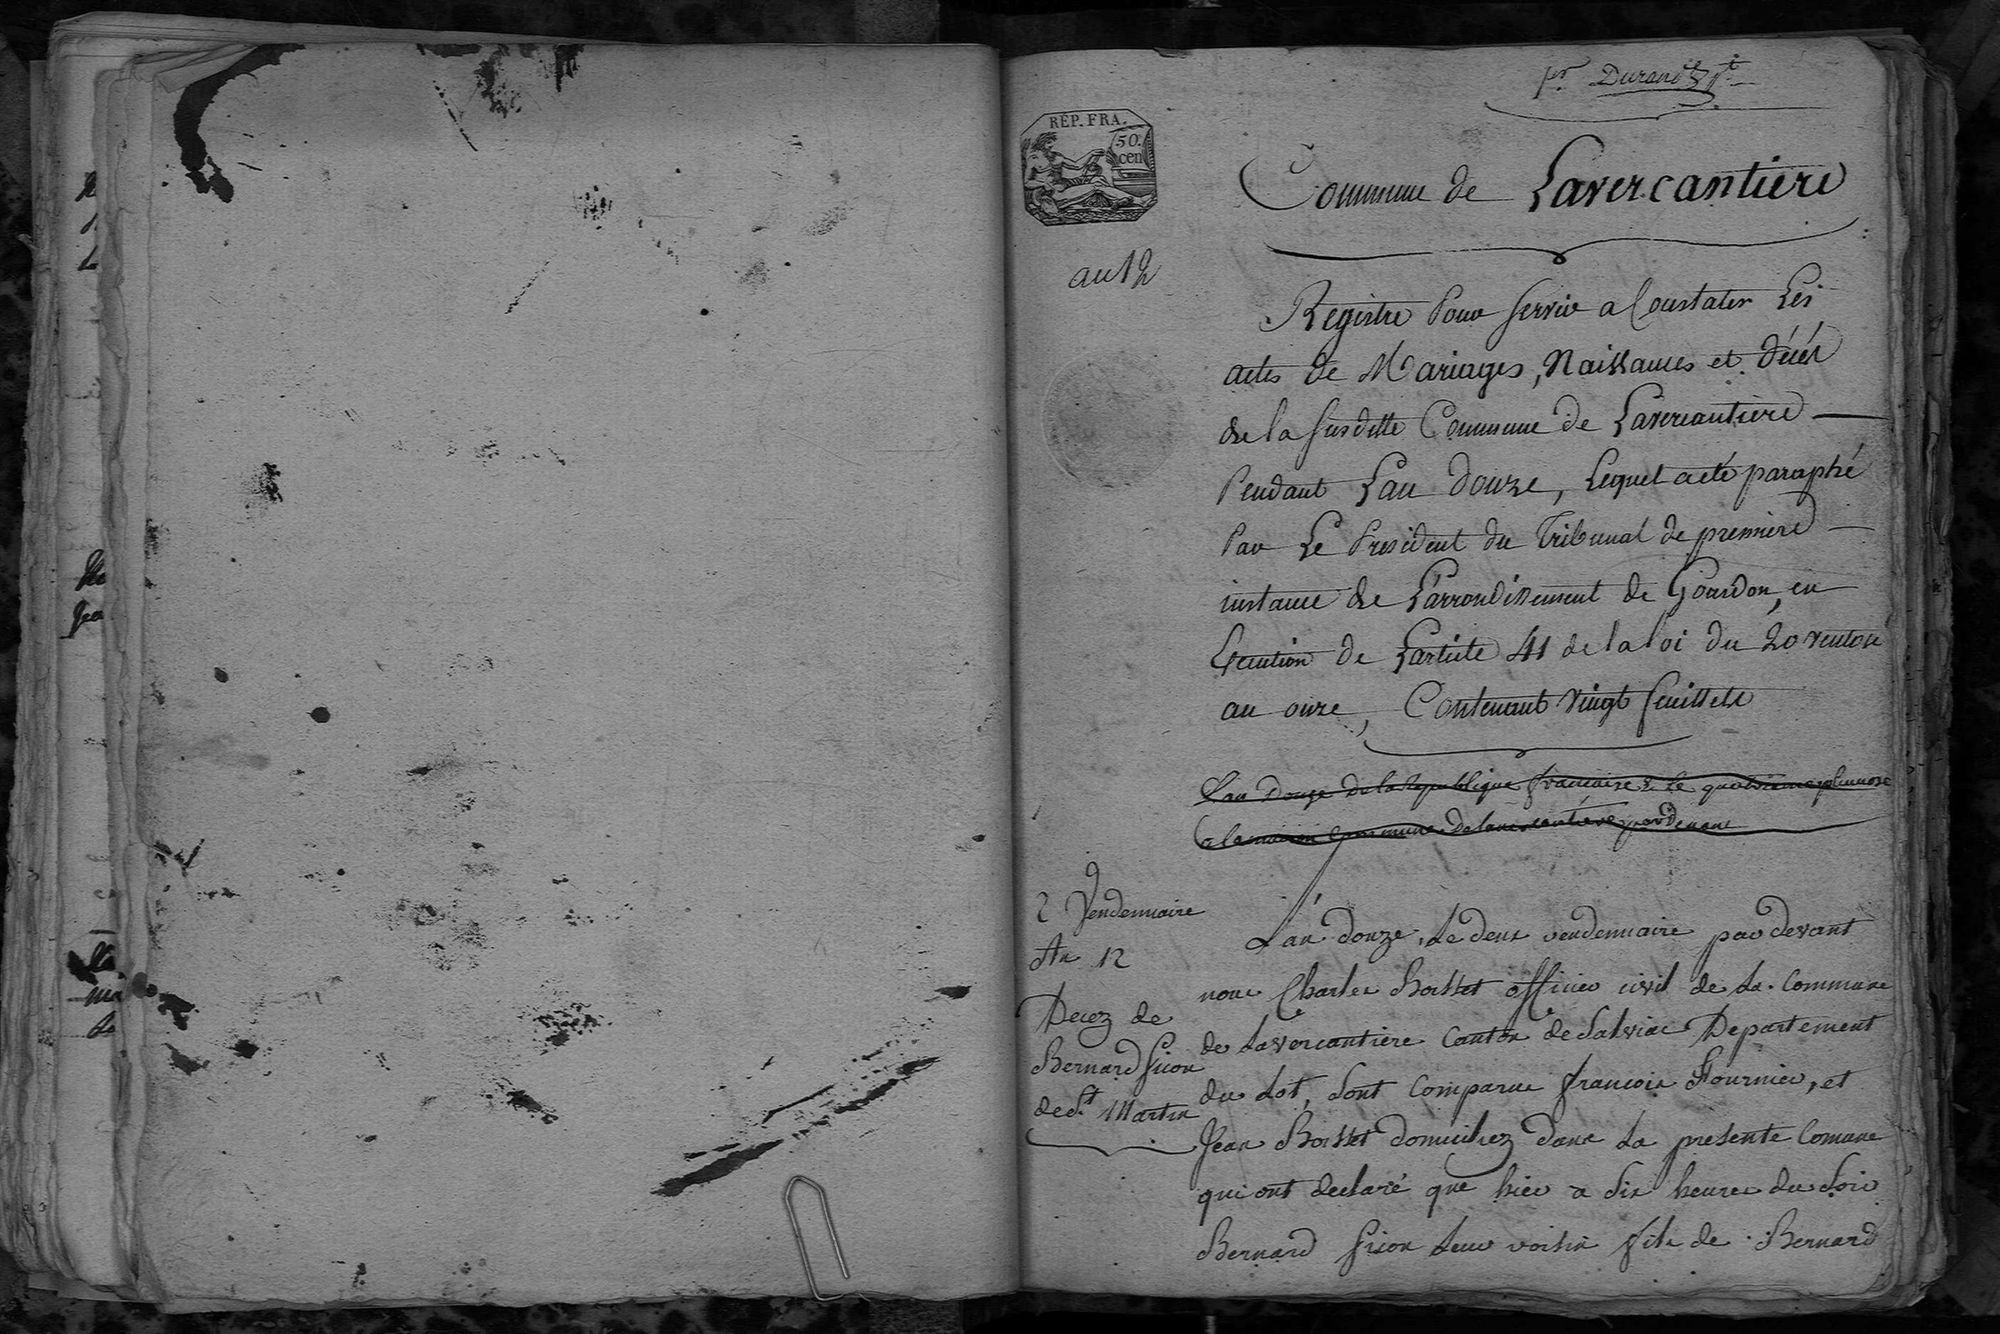 pr Durand
RÉP. FRA.
50.
cen
Commune de Lavercantiere
an 12
Registre Pour servir a Constater Les
actes de Mariages, Naissances et décés
de la susditte Commune de Lavercantiere
Pendant L'an douze, Lequel a eté paraphé
Par Le President du Tribunal de premiere
instance de L'arrondissement de Gourdon, en
Execution de L'article 41 de la loi du 20 ventose
an onze, Contenant vingt feuillets
L'an douze de la republique francaise & le quatrieme pluviose
a la maison commune de lavercantiere pardevant
2 Vendemiaire
An 12
Decez de
Bernard Sicor
de St Martin
L'an douze, le deux vendemiaire par devant
nous Charles Boisset officier civil de la Commune
de Lavercantiere Canton de Salviac Departement
du Lot, sont comparus francois Fournier, et
Jean Boisset domiciliez dans la presente Comune
qui ont declaré que hier a six heures du soir
Bernard Sicor leur voisin fils de Bernard